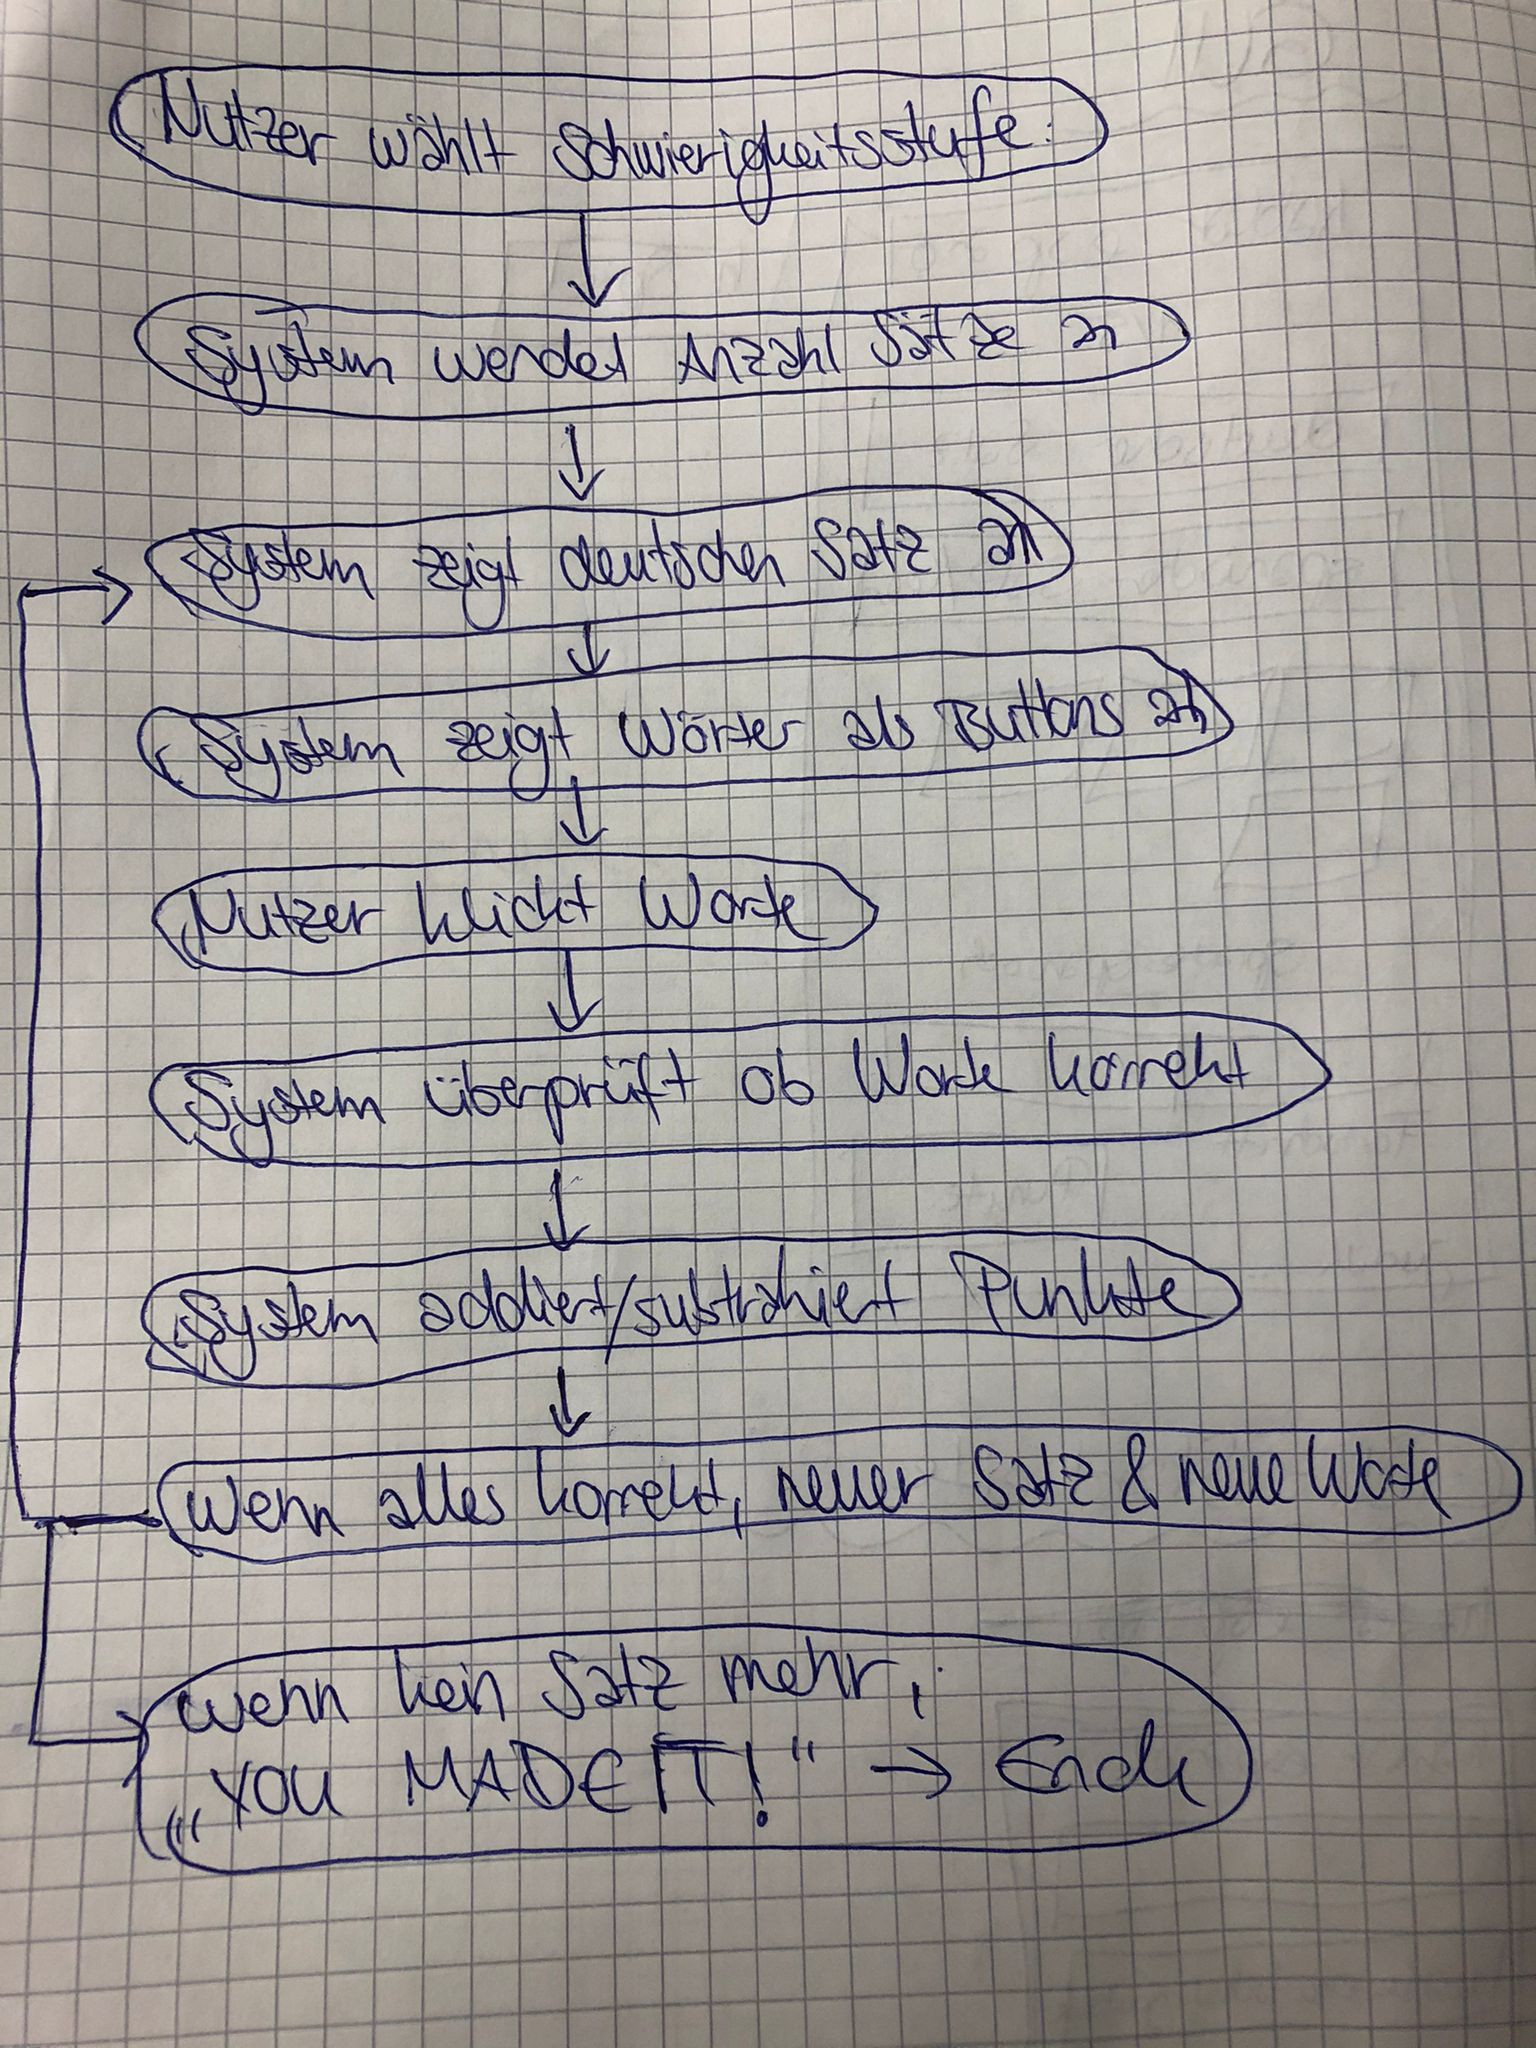 Nutzer wählt Schwierigkeitsstufe.
System wendet Anzahl Sätze an
System zeigt deutschen Satz an
System zeigt Wörter als Buttons an
Nutzer klickt Worte
System überprüft ob Worte korrekt
System addiert/subtrahiert Punkte
Wenn alles korrekt, neuer Satz & neue Worte
Wenn kein Satz mehr,
„YOU MADE IT!“ → Ende